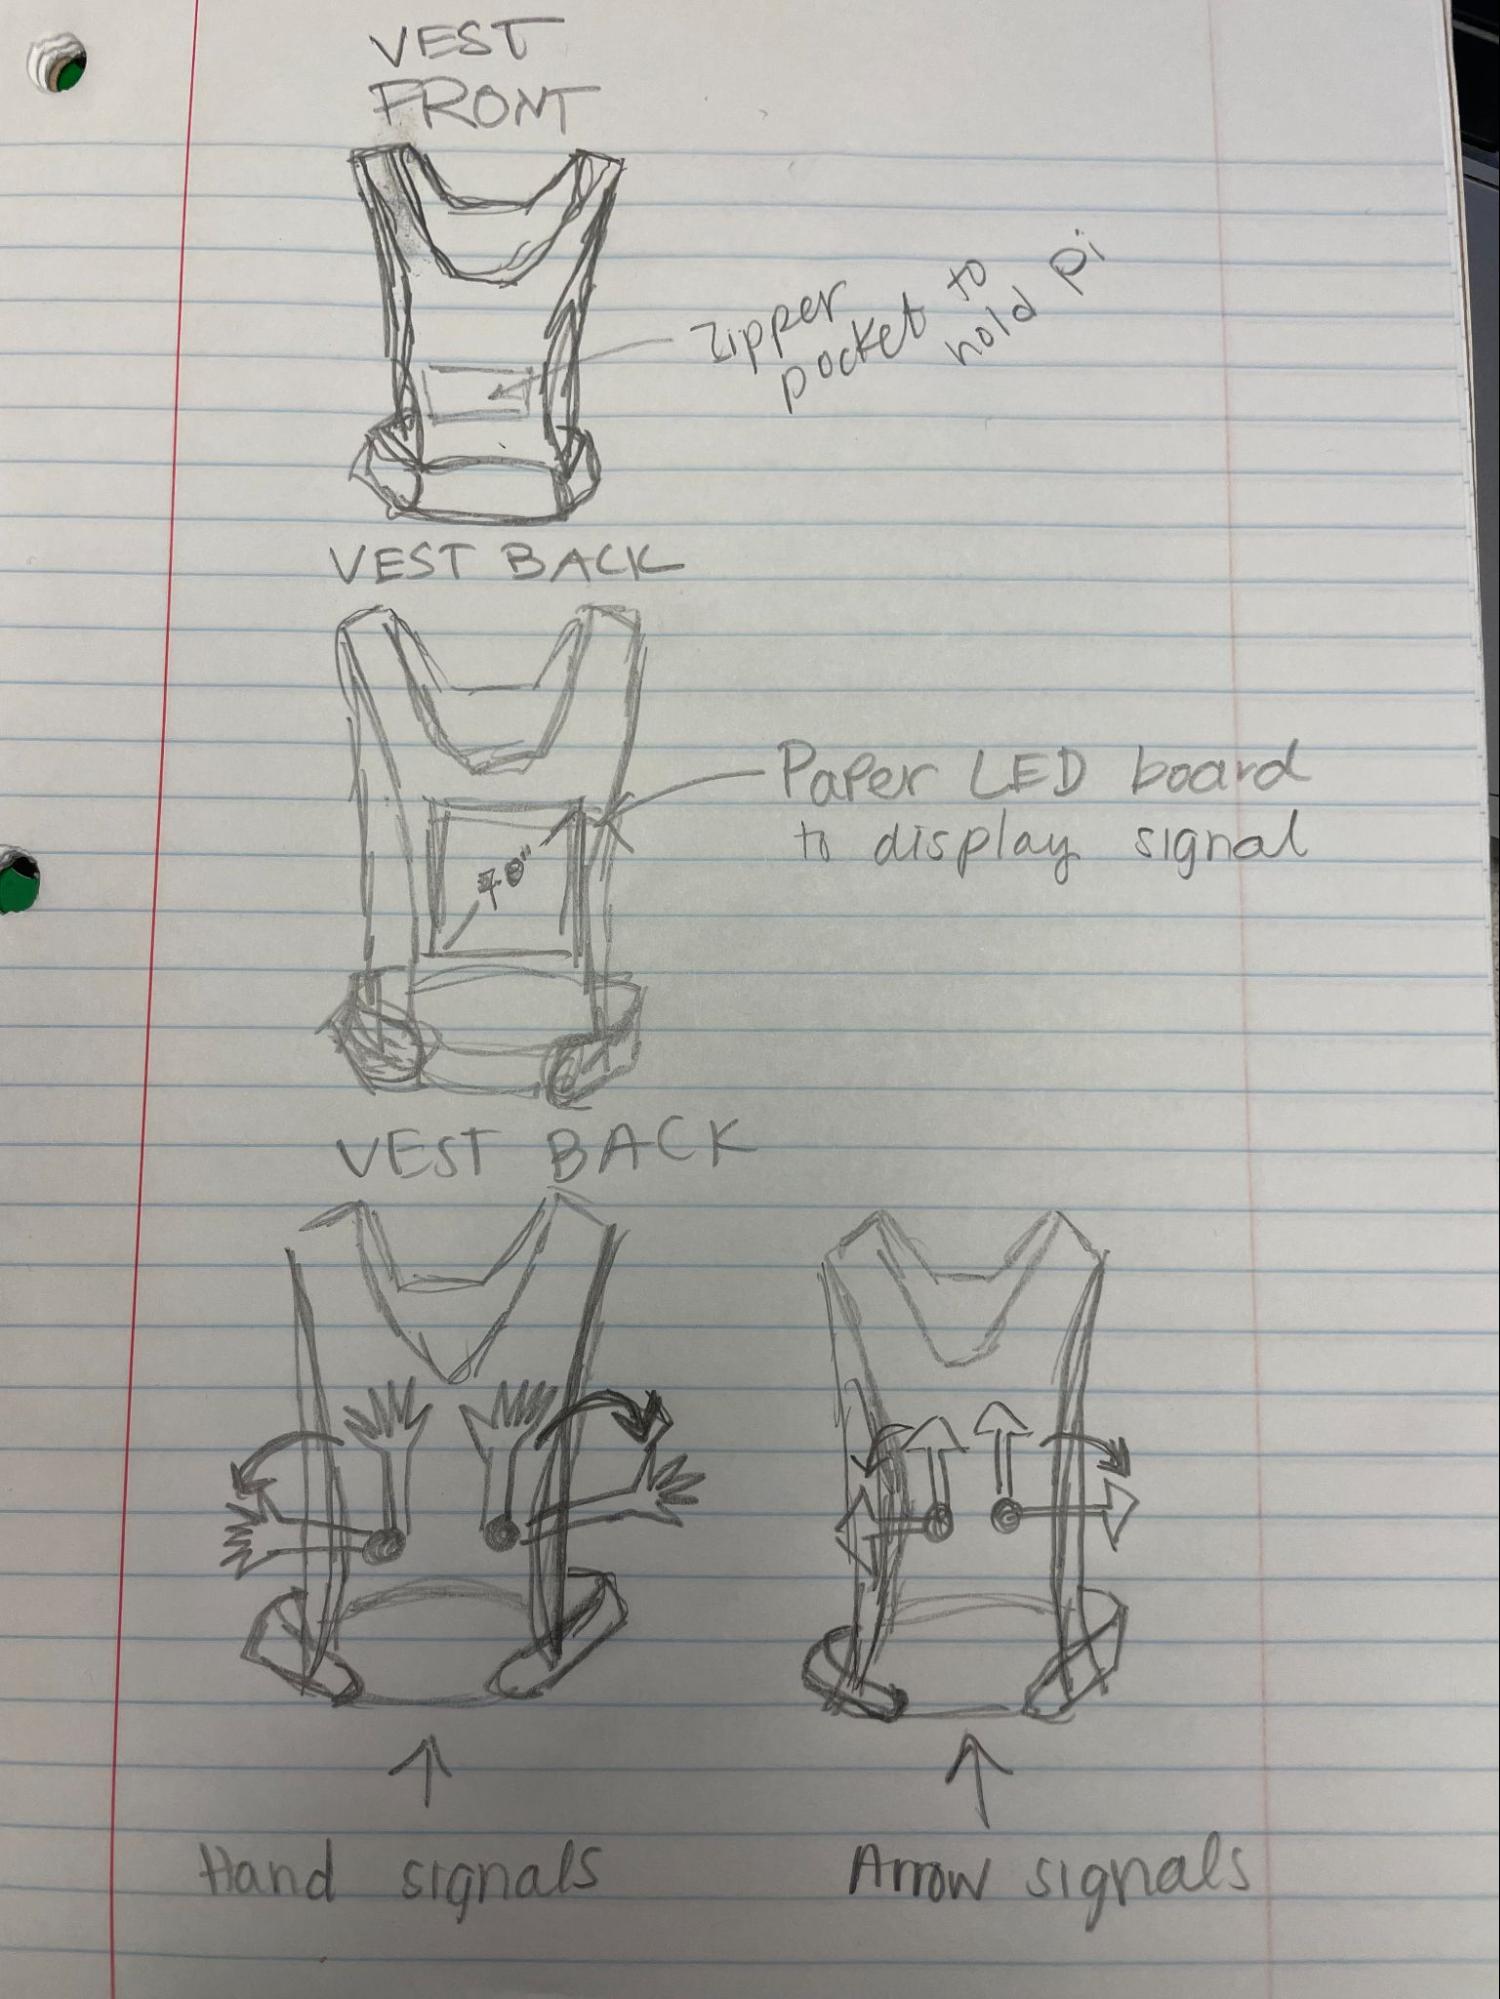 VEST
FRONT
Zipper
pocket to
hold pi
VEST BACK
Paper LED board
to display signal
VEST BACK
Hand signals
Arrow signals